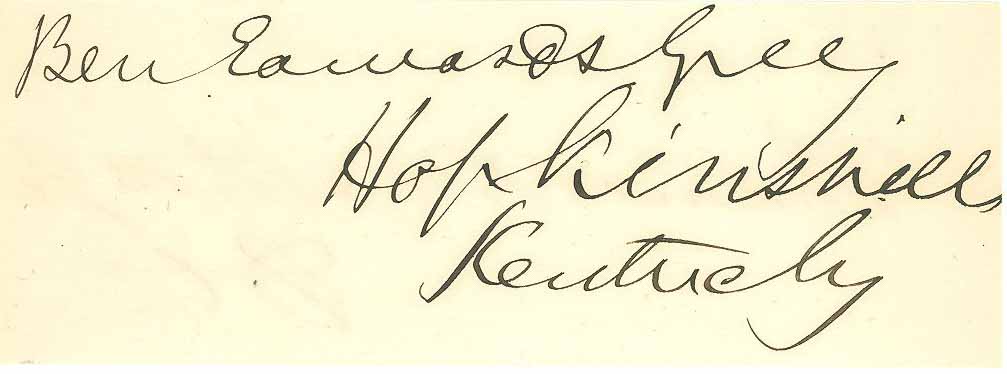 Ben Edwards Grey
Hopkinsville
Kentucky